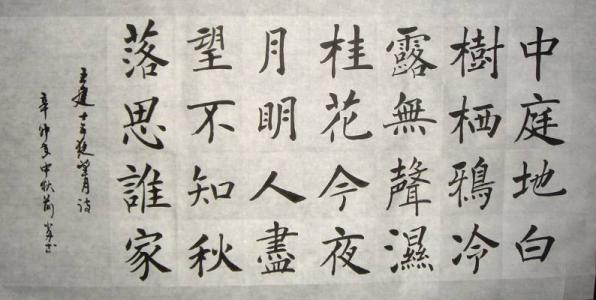 中庭地白
樹栖鴉冷
露無聲濕
桂花今夜
月明人盡
望不知秋
落思誰家
王建十五夜望月诗
辛卯年中秋